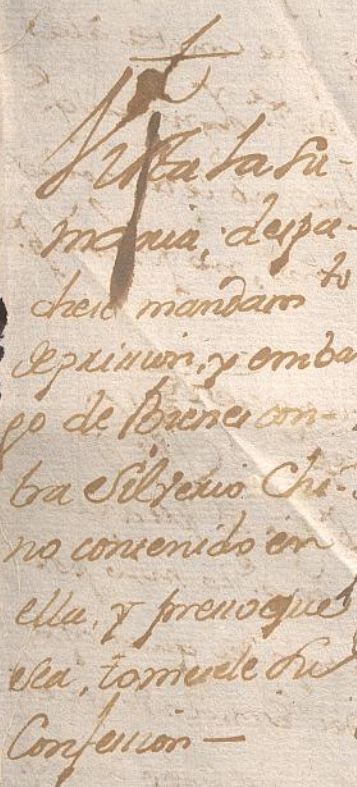 Vista la su-
maria, despa-
chese mandam.to
de prision, y embar
go de Bienes con-
tra Silverio Chi-
no contenido en
ella, y preso que
sea, tomesele su
Confesion —